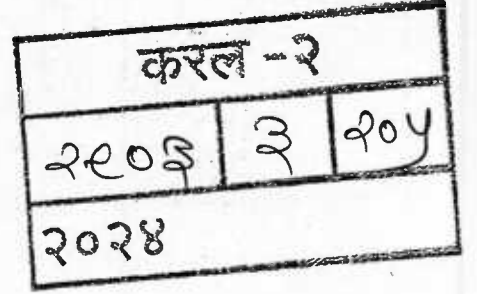 करल -२
२९०३ ३ २०५
२०२४